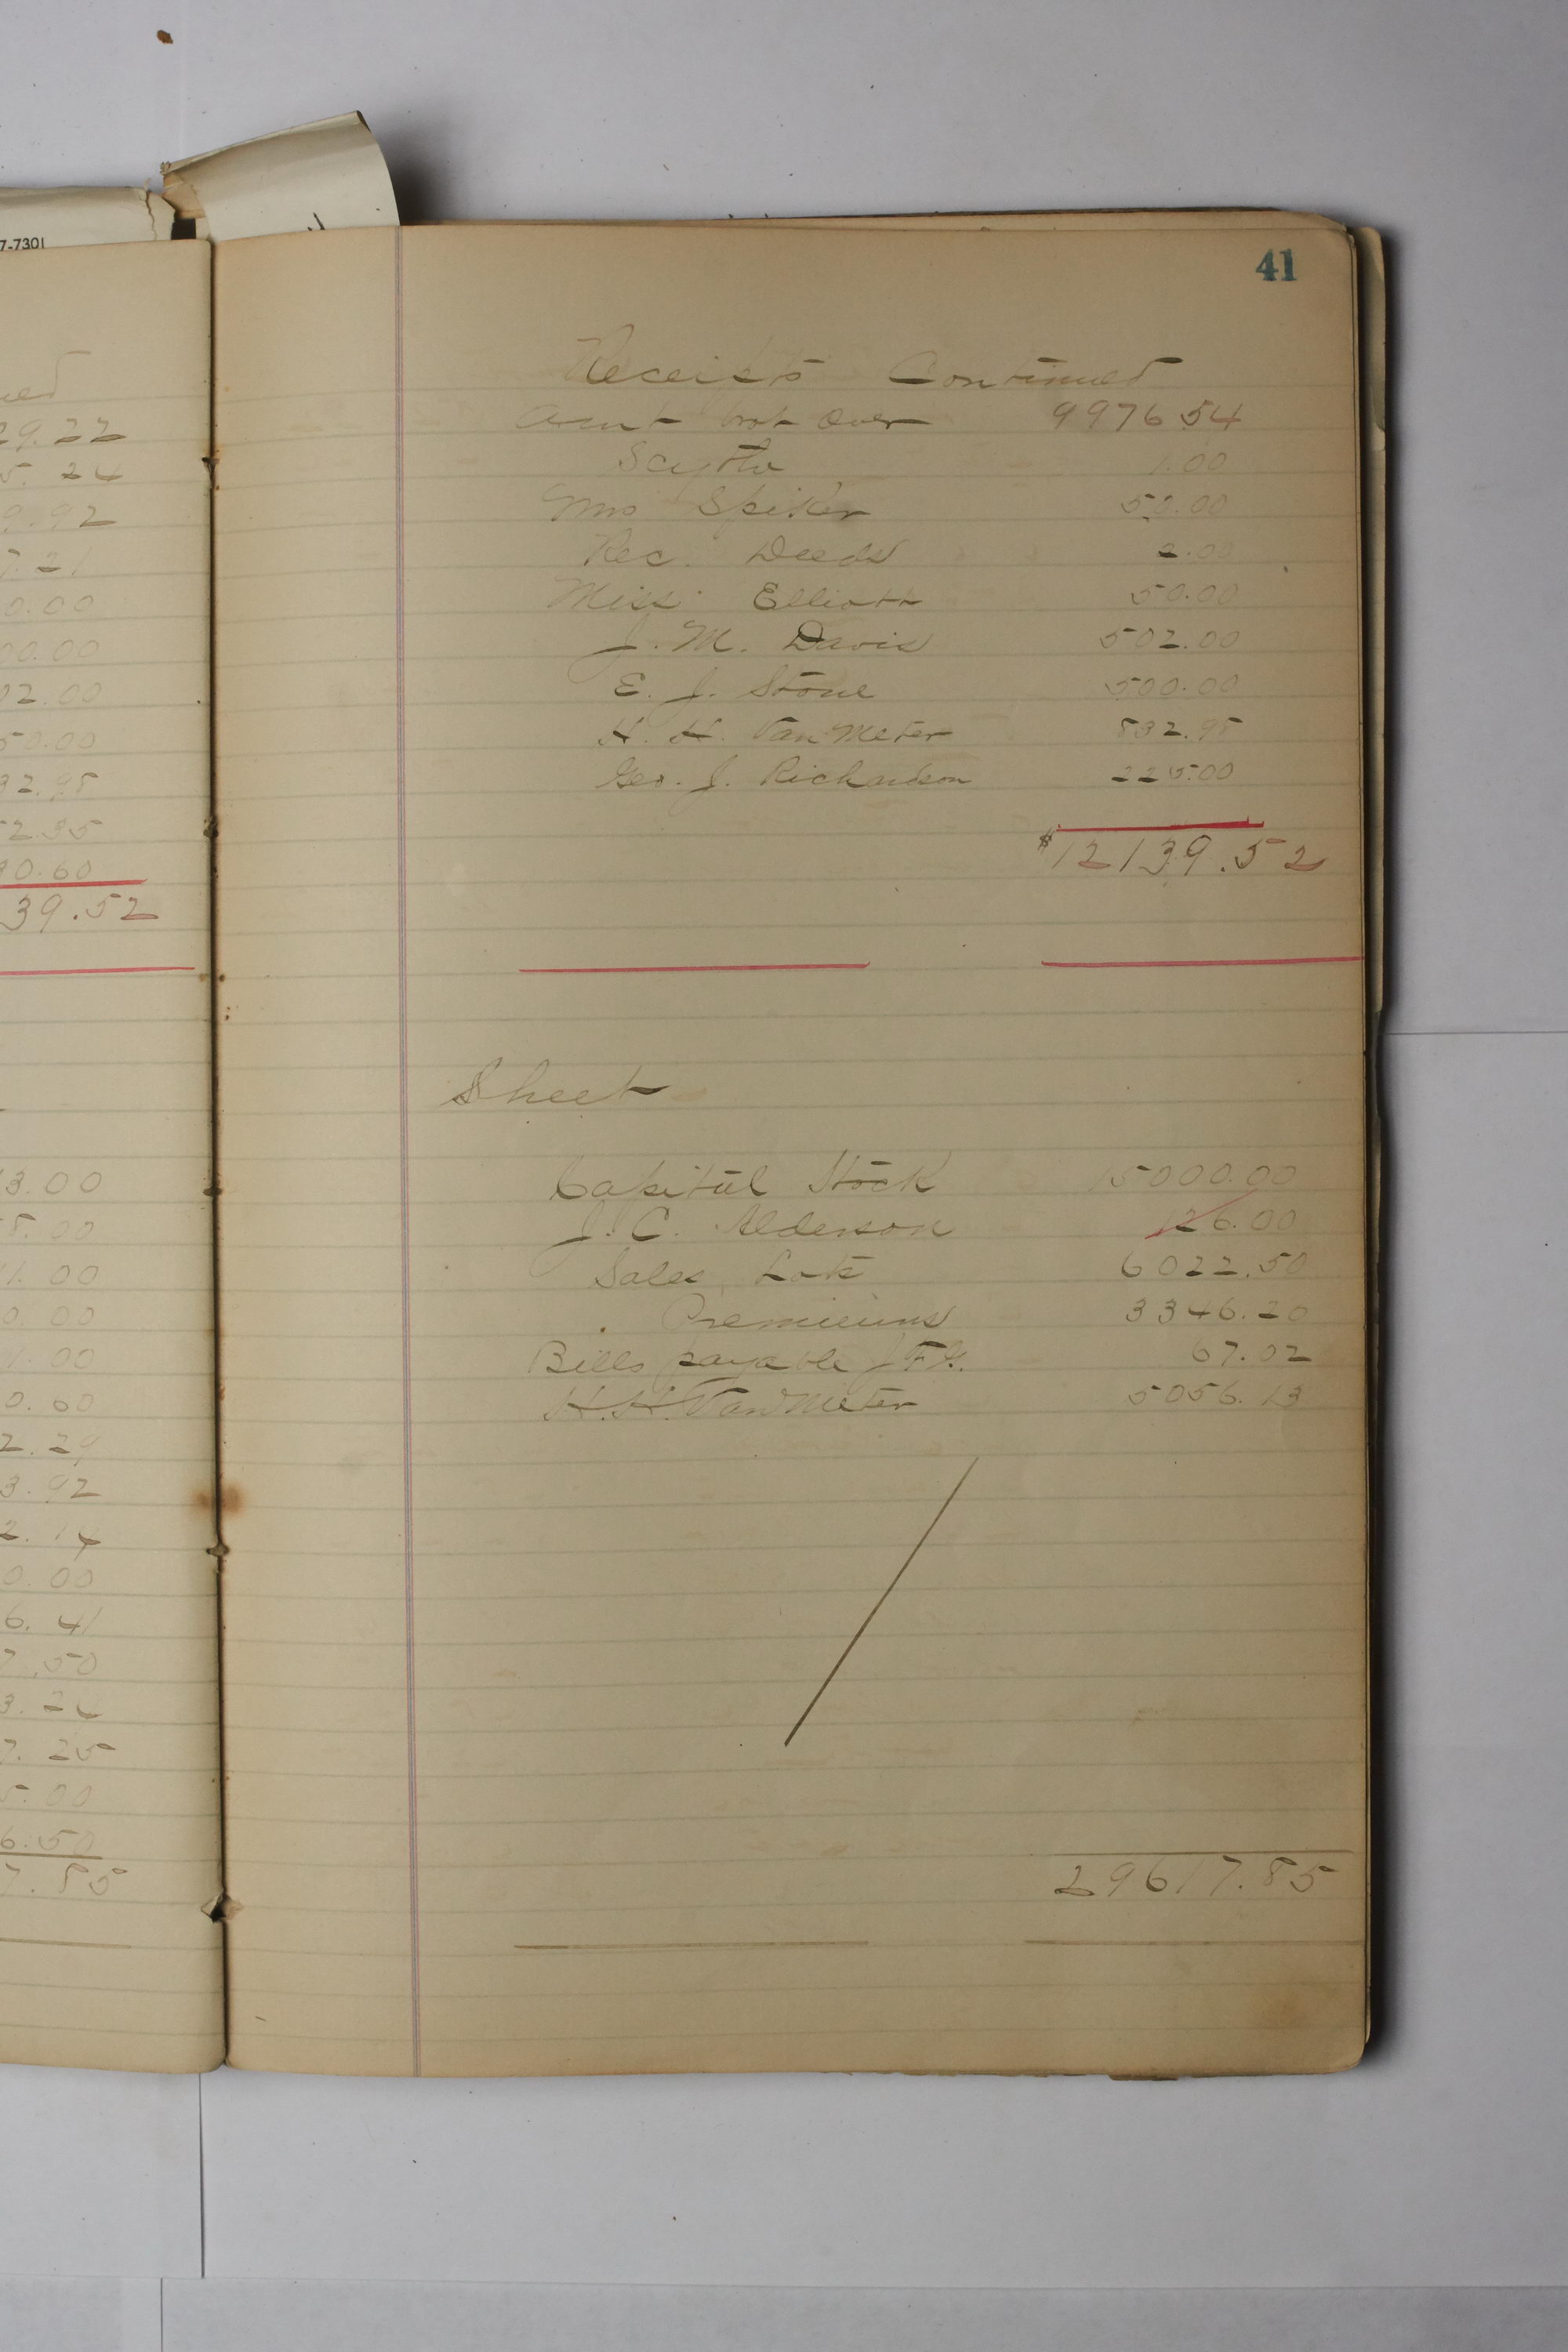 7-7301
ued
29.22
5.24
9.92
7.21
0.00
00.00
02.00
50.00
32.98
52.35
30.60
39.52
3.00
8.00
1.00
0.00
1.00
0.60
2.29
3.92
2.14
0.00
6.41
7.50
3.24
7.25
5.00
6.50
7.85
41
Receipts Continued
Amt brot Over 9976 54
Scythe 1.00
Mrs Spiker 50.00
Rec. Deeds 2.00
Miss Elliott 50.00
J. M. Davis 502.00
E. J. Stone 500.00
H. H. Van Meter 832.98
Geo. J. Richardson 225.00
$12139.52
Sheet
Capital Stock 15000.00
J. C. Alderson 126.00
Sales, Lots 6022.50
Premiums 3346.20
Bills payable J F H. 67.02
H. H. Van Meter 5056.13
29617.85